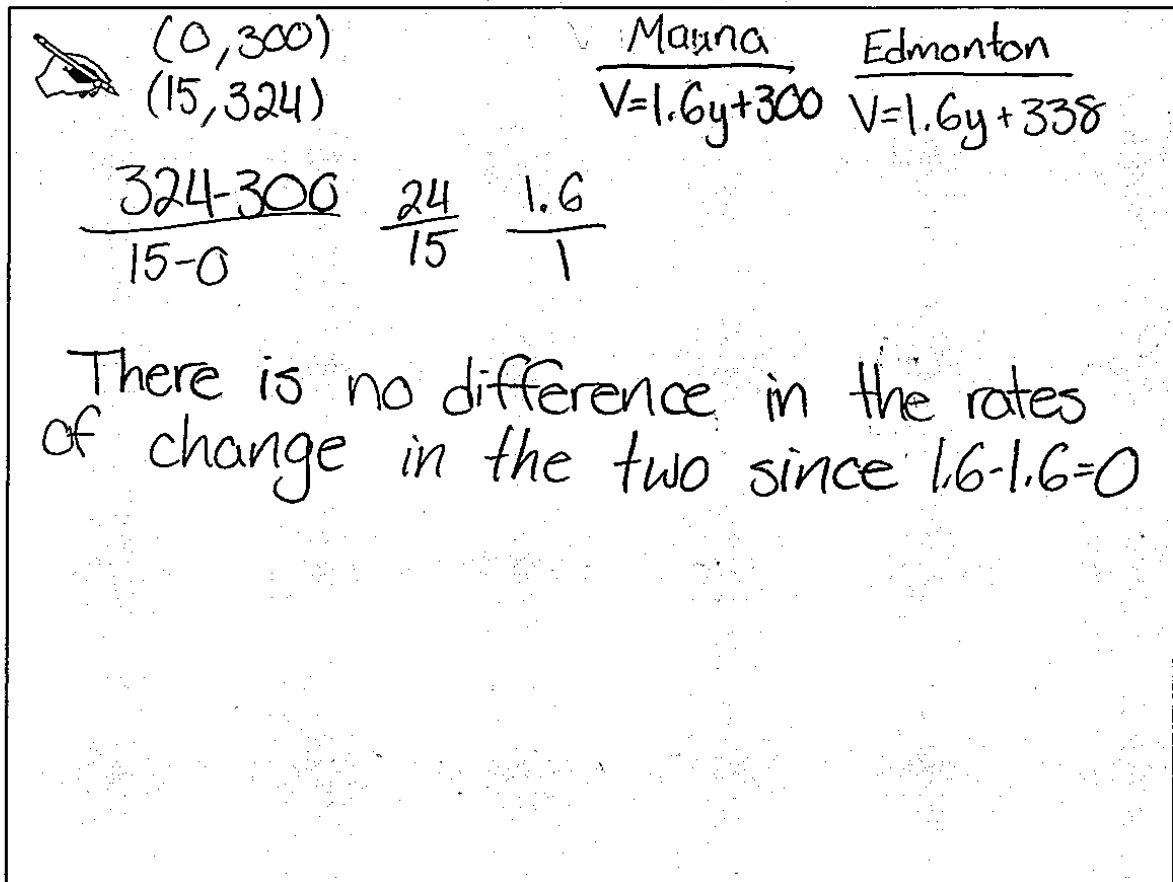 (0,300)
(15,324)
Mauna
V=1.6y+300
Edmonton
V=1.6y+338
324-300
15-0
24
15
1.6
1
There is no difference in the rates
of change in the two since 1.6-1.6=0